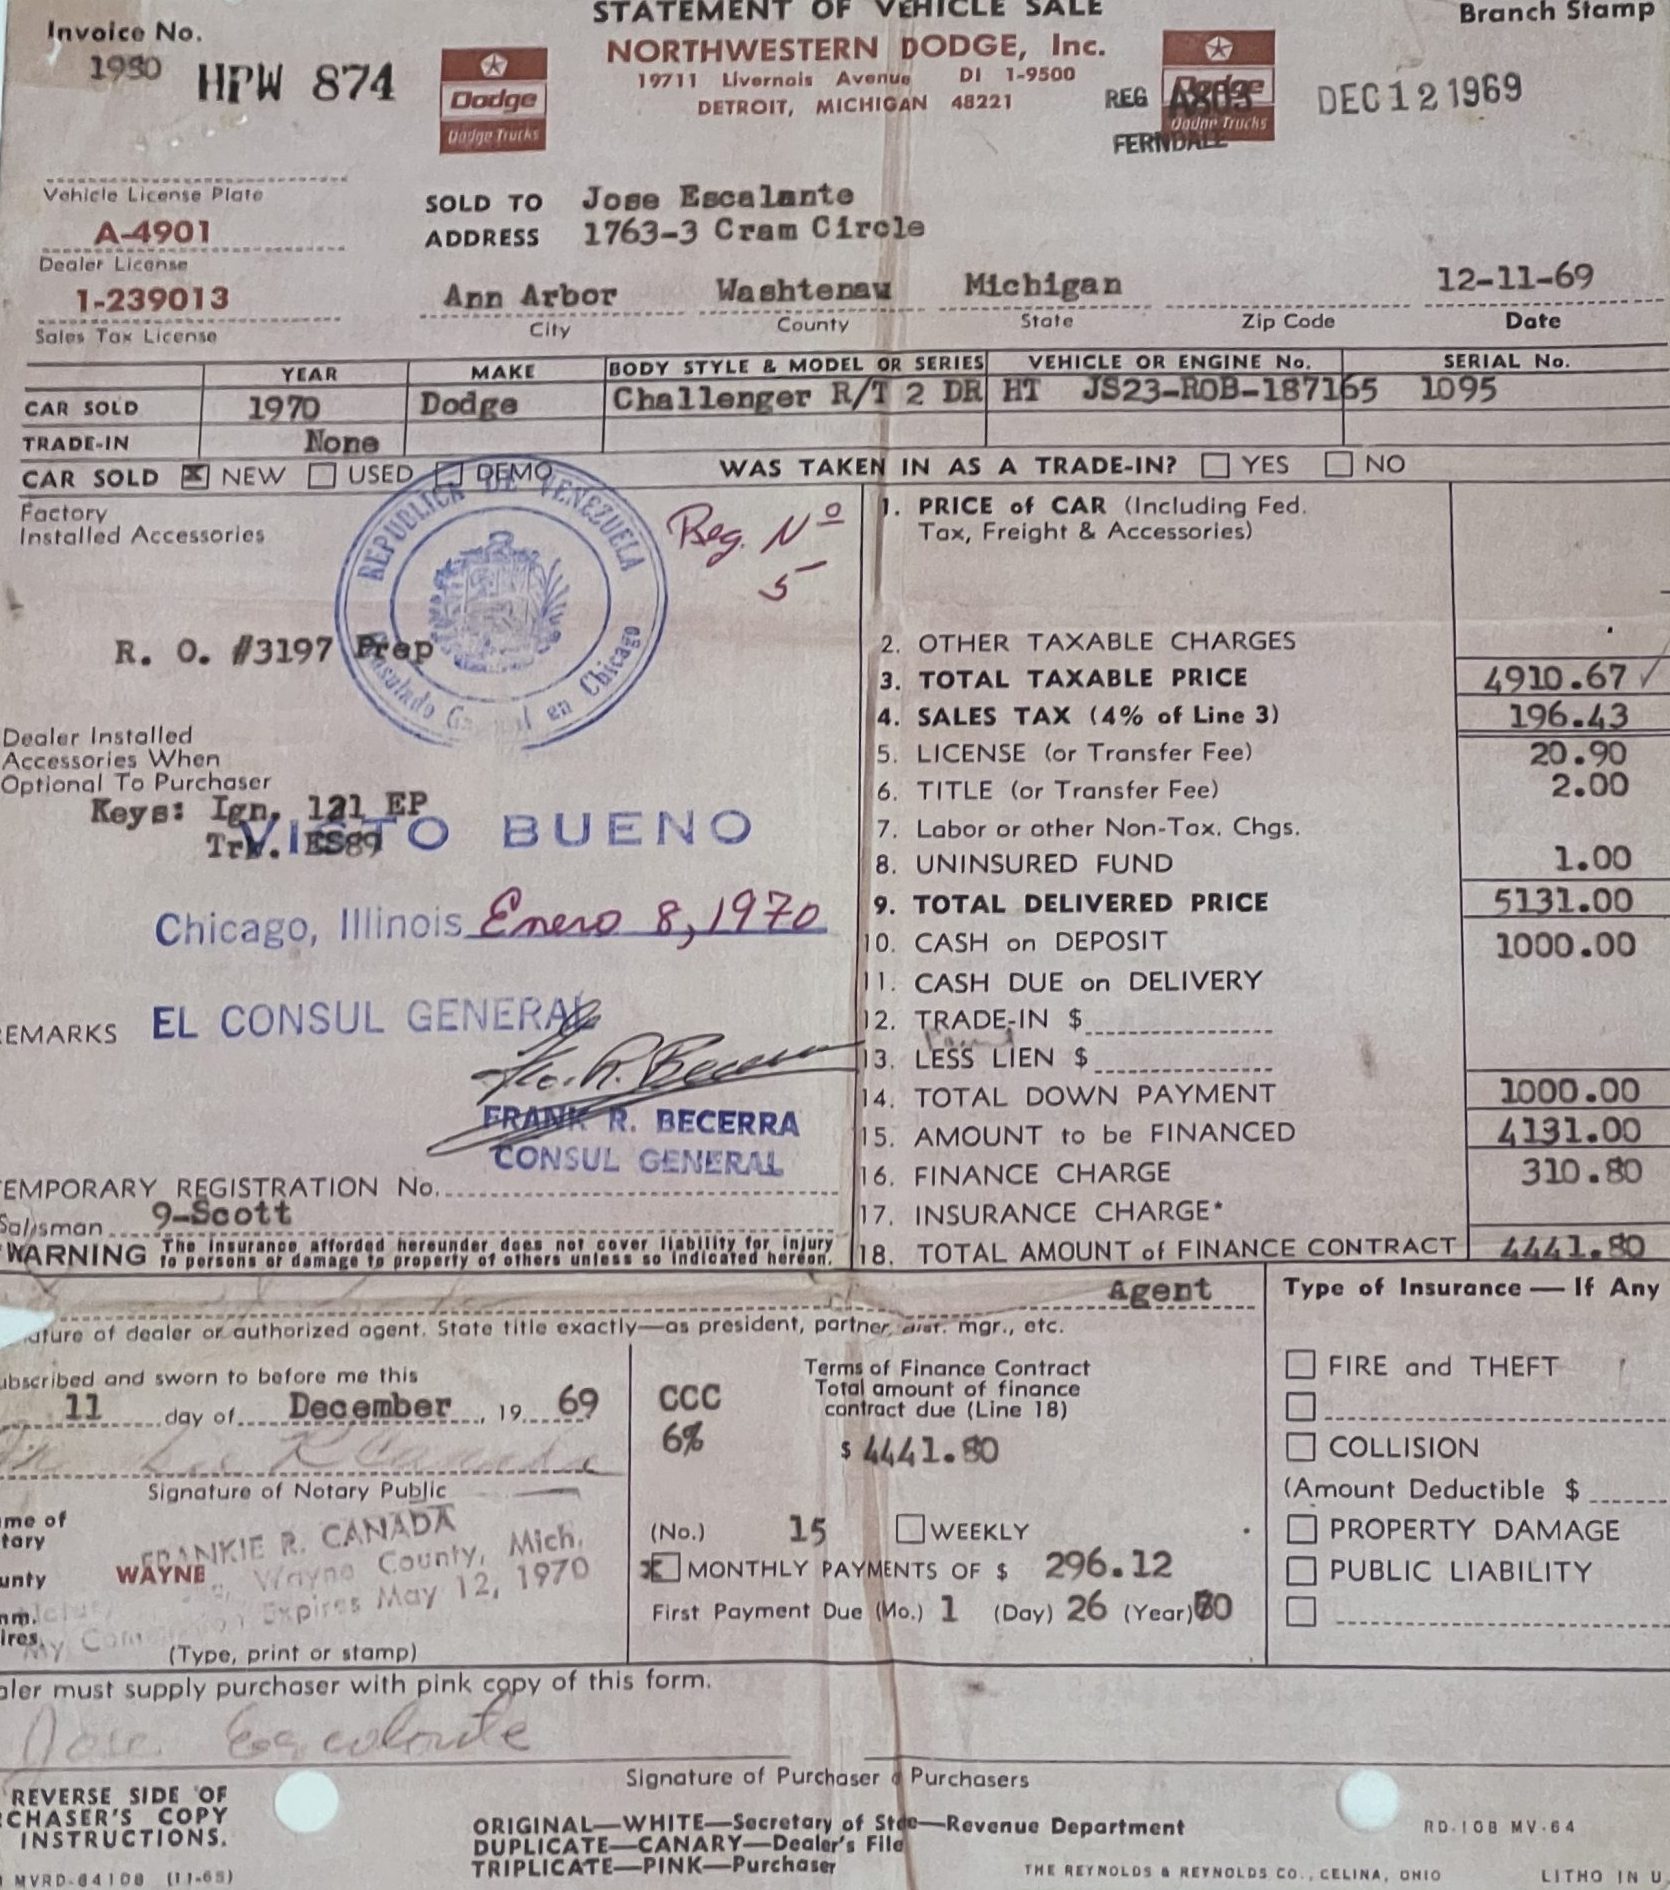 STATEMENT OF VEHICLE SALE
Branch Stamp
Invoice No.
1980 HPW 874
NORTHWESTERN DODGE, Inc.
19711 Livernois Avenue DI 1-9500
DETROIT, MICHIGAN 48221
Dodge
Dodge Trucks
Dodge
Dodge Trucks
REG A803
FERNDALE
DEC 12 1969
Vehicle License Plate
A-4901
Dealer License
1-239013
Sales Tax License
SOLD TO Jose Escalante
ADDRESS 1763-3 Cram Circle
Ann Arbor Washtenaw Michigan 12-11-69
City County State Zip Code Date
YEAR MAKE BODY STYLE & MODEL OR SERIES VEHICLE OR ENGINE No. SERIAL No.
CAR SOLD 1970 Dodge Challenger R/T 2 DR HT JS23-ROB-187165 1095
TRADE-IN None
CAR SOLD NEW USED DEMO WAS TAKEN IN AS A TRADE-IN? YES NO
Factory
Installed Accessories
REPUBLICA DE VENEZUELA
en Chicago
Reg. Nº
5
R. O. #3197 Prep
Dealer Installed
Accessories When
Optional To Purchaser
Keys: Ign. 121 EP
Trk. ES89
VISTO BUENO
Chicago, Illinois Enero 8, 1970
REMARKS EL CONSUL GENERAL
FRANK R. BECERRA
CONSUL GENERAL
TEMPORARY REGISTRATION No.
Salisman 9-Scott
WARNING The insurance afforded hereunder does not cover liability for injury
to persons or damage to property of others unless so indicated hereon.
1. PRICE of CAR (Including Fed.
Tax, Freight & Accessories)
2. OTHER TAXABLE CHARGES
3. TOTAL TAXABLE PRICE 4910.67 ✓
4. SALES TAX (4% of Line 3) 196.43
5. LICENSE (or Transfer Fee) 20.90
6. TITLE (or Transfer Fee) 2.00
7. Labor or other Non-Tax. Chgs.
8. UNINSURED FUND 1.00
9. TOTAL DELIVERED PRICE 5131.00
10. CASH on DEPOSIT 1000.00
11. CASH DUE on DELIVERY
12. TRADE-IN $
13. LESS LIEN $
14. TOTAL DOWN PAYMENT 1000.00
15. AMOUNT to be FINANCED 4131.00
16. FINANCE CHARGE 310.80
17. INSURANCE CHARGE*
18. TOTAL AMOUNT of FINANCE CONTRACT 4441.80
Agent
ature of dealer or authorized agent. State title exactly—as president, partner, dist. mgr., etc.
ubscribed and sworn to before me this
11 day of December, 19 69
Signature of Notary Public
me of
tary
FRANKIE R. CANADA
unty WAYNE Wayne County, Mich.
mm.
ires. My Commission Expires May 12, 1970
(Type, print or stamp)
CCC
6%
Terms of Finance Contract
Total amount of finance
contract due (Line 18)
$ 4441.80
(No.) 15 WEEKLY
MONTHLY PAYMENTS OF $ 296.12
First Payment Due (Mo.) 1 (Day) 26 (Year) 70
Type of Insurance — If Any
FIRE and THEFT
COLLISION
(Amount Deductible $
PROPERTY DAMAGE
PUBLIC LIABILITY
aler must supply purchaser with pink copy of this form.
Jose Escalante
Signature of Purchaser Purchasers
REVERSE SIDE OF
CHASER'S COPY
INSTRUCTIONS.
MVRD-84108 (11-65)
ORIGINAL—WHITE—Secretary of State—Revenue Department
DUPLICATE—CANARY—Dealer's File
TRIPLICATE—PINK—Purchaser
RD-108 MV-64
THE REYNOLDS & REYNOLDS CO., CELINA, OHIO
LITHO IN U